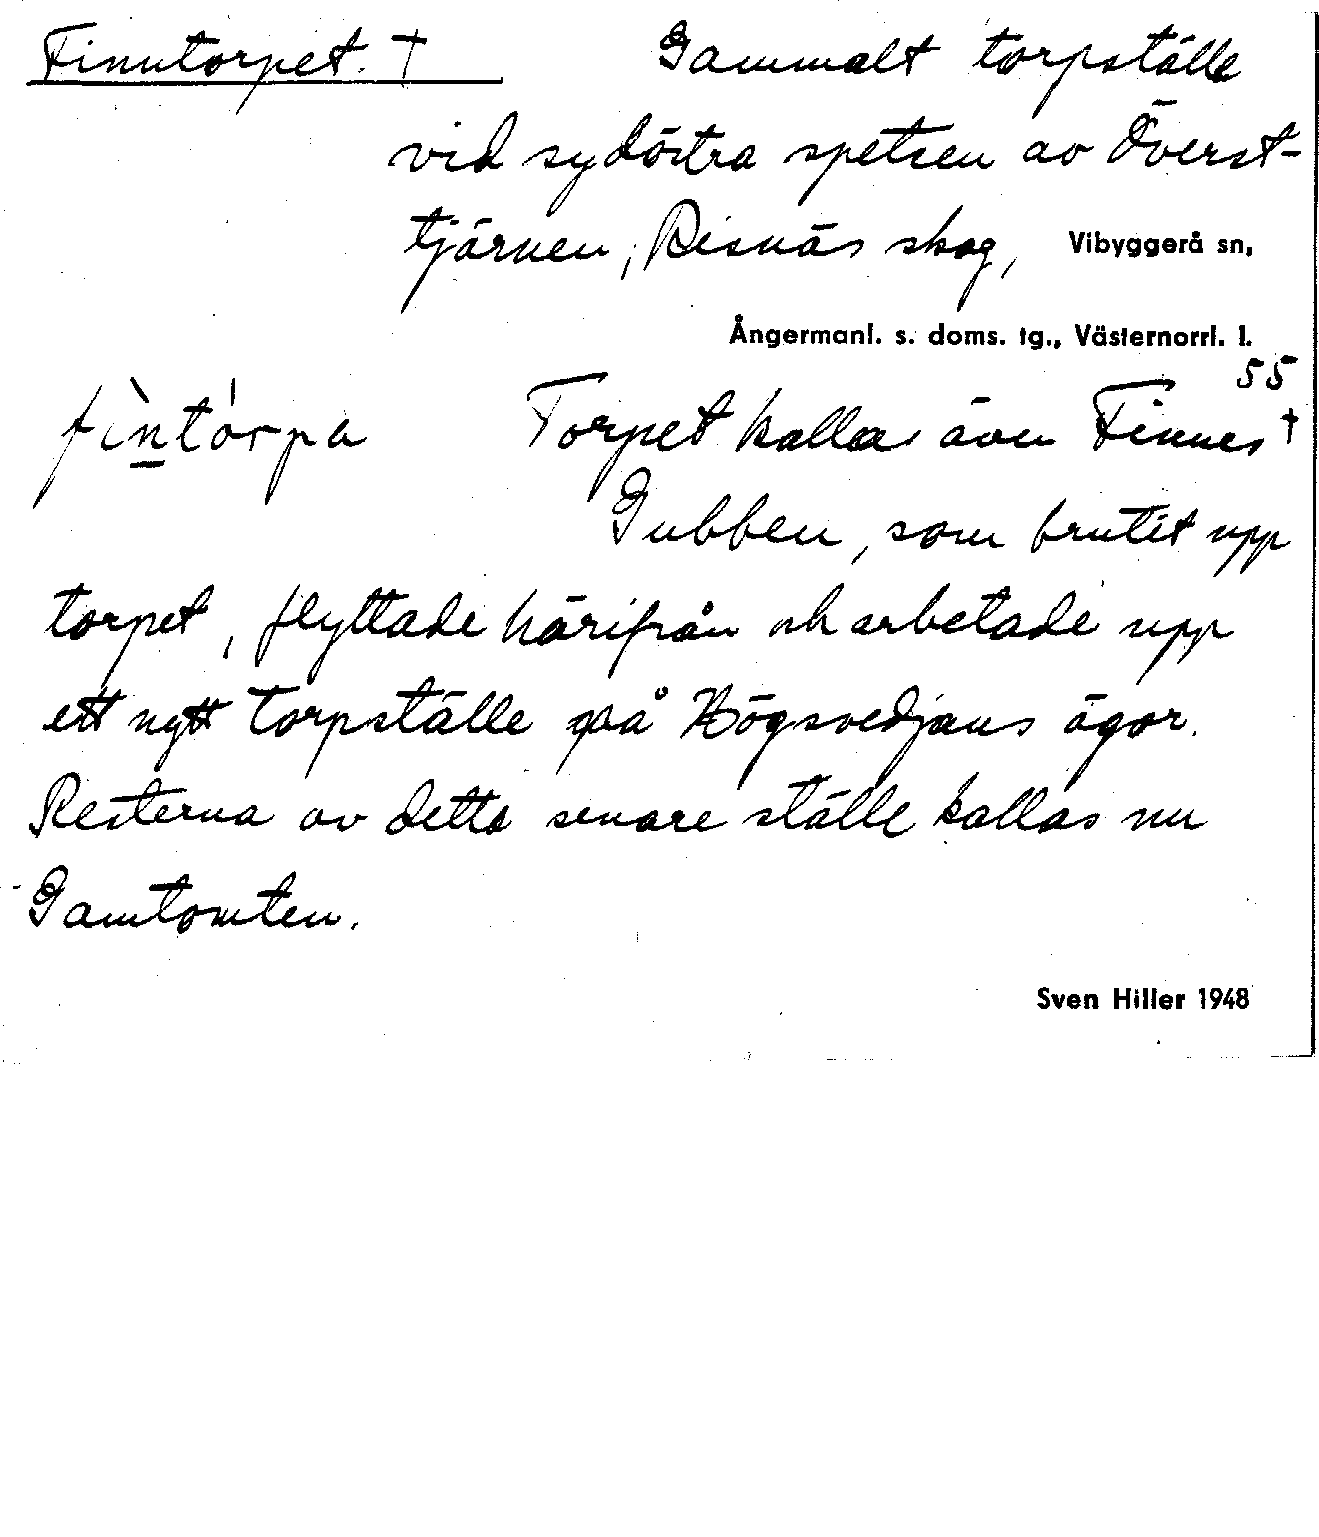 Finntorpet. † Gammalt torpställe
vid sydöstra spetsen av Överst-
tjärnen, Risnäs skog, Vibyggerå sn,
Ångermanl. s. doms. tg., Västernorrl. l.
55
fìntórpa Torpet kallas även Finnes †
Gubben, som brutit upp
torpet, flyttade härifrån och arbetade upp
ett nytt torpställe på Högsvedjans ägor.
Resterna av detta senare ställe kallas nu
Gamtomten.
Sven Hiller 1948